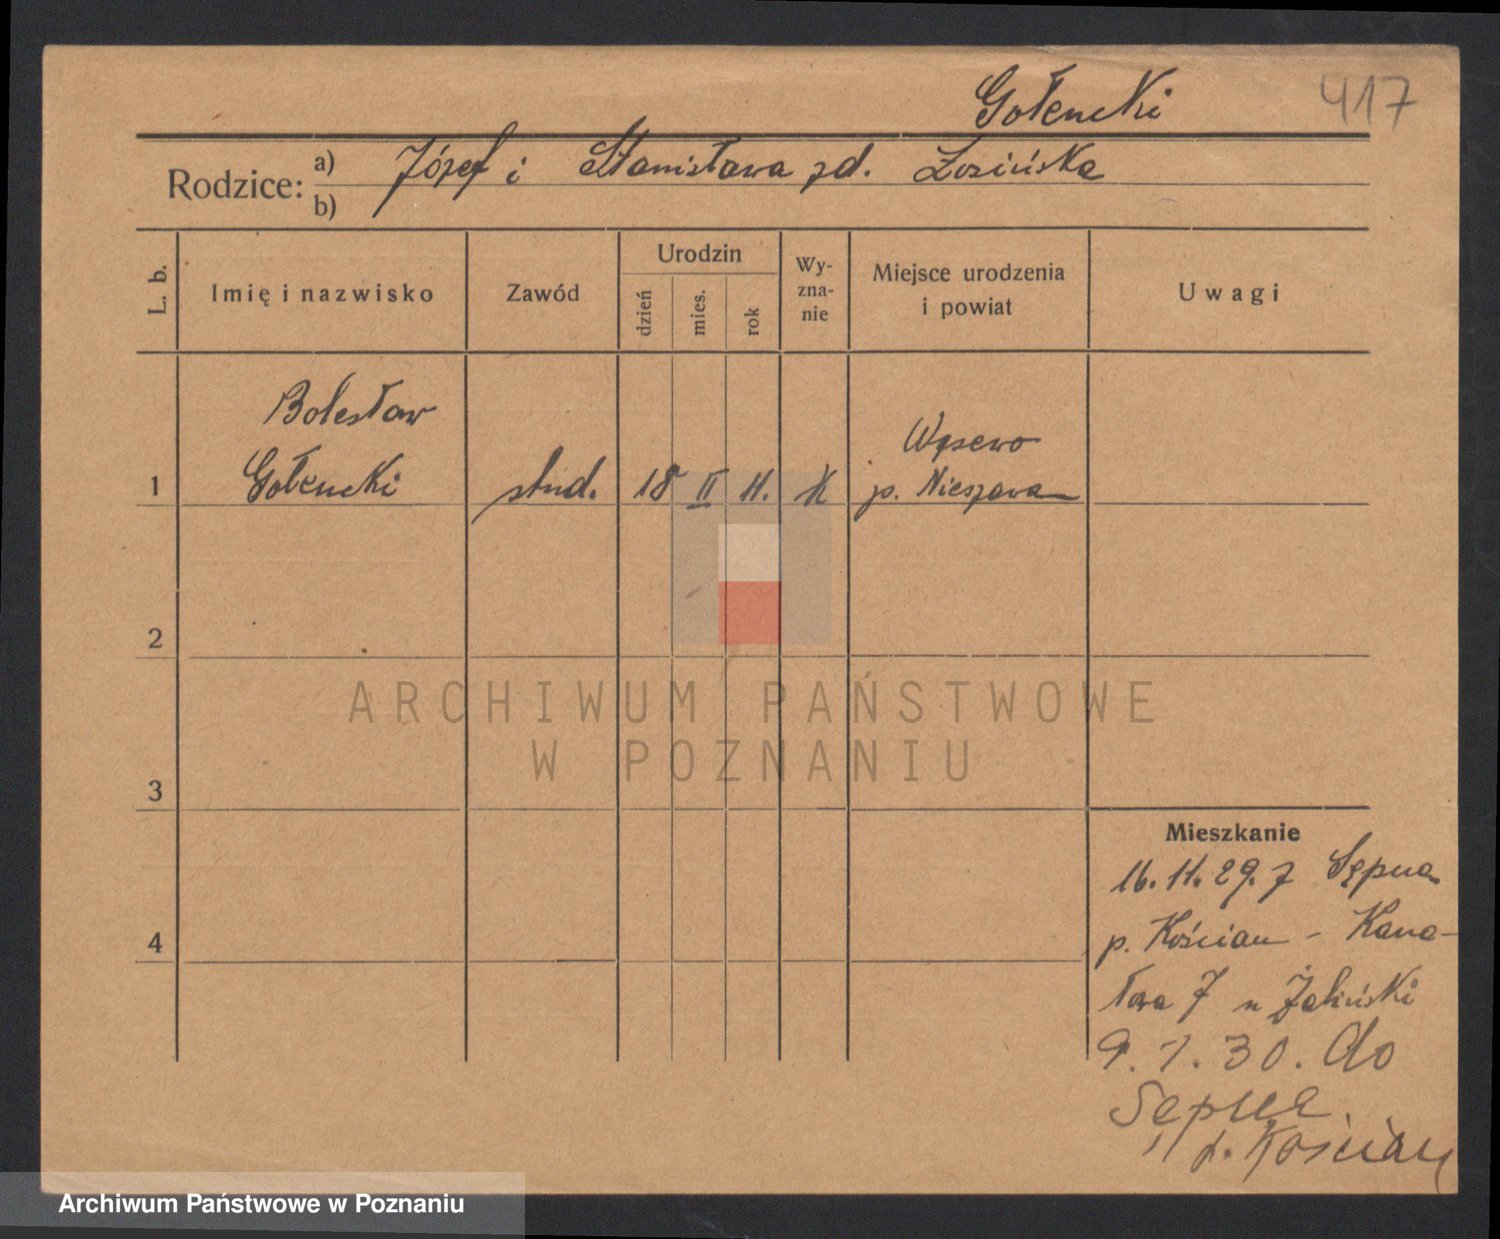 Gołencki 417
Rodzice: a) Józef i Stanisława zd. Łosińska
b)
L. b. Imię i nazwisko Zawód Urodzin dzień mies. rok Wy-zna-nie Miejsce urodzenia i powiat Uwagi
Bolesław
1 Gołencki stud. 18 II 11. K Wąsewo
p. Nieszawa
2
3
4
ARCHIWUM PAŃSTWOWE
W POZNANIU
Mieszkanie
16.11.29. z Sępna
p. Kościan - Kana-
łowa 7 u Żaliński
9.1.30. do
Sępna.
p. Kościan
Archiwum Państwowe w Poznaniu